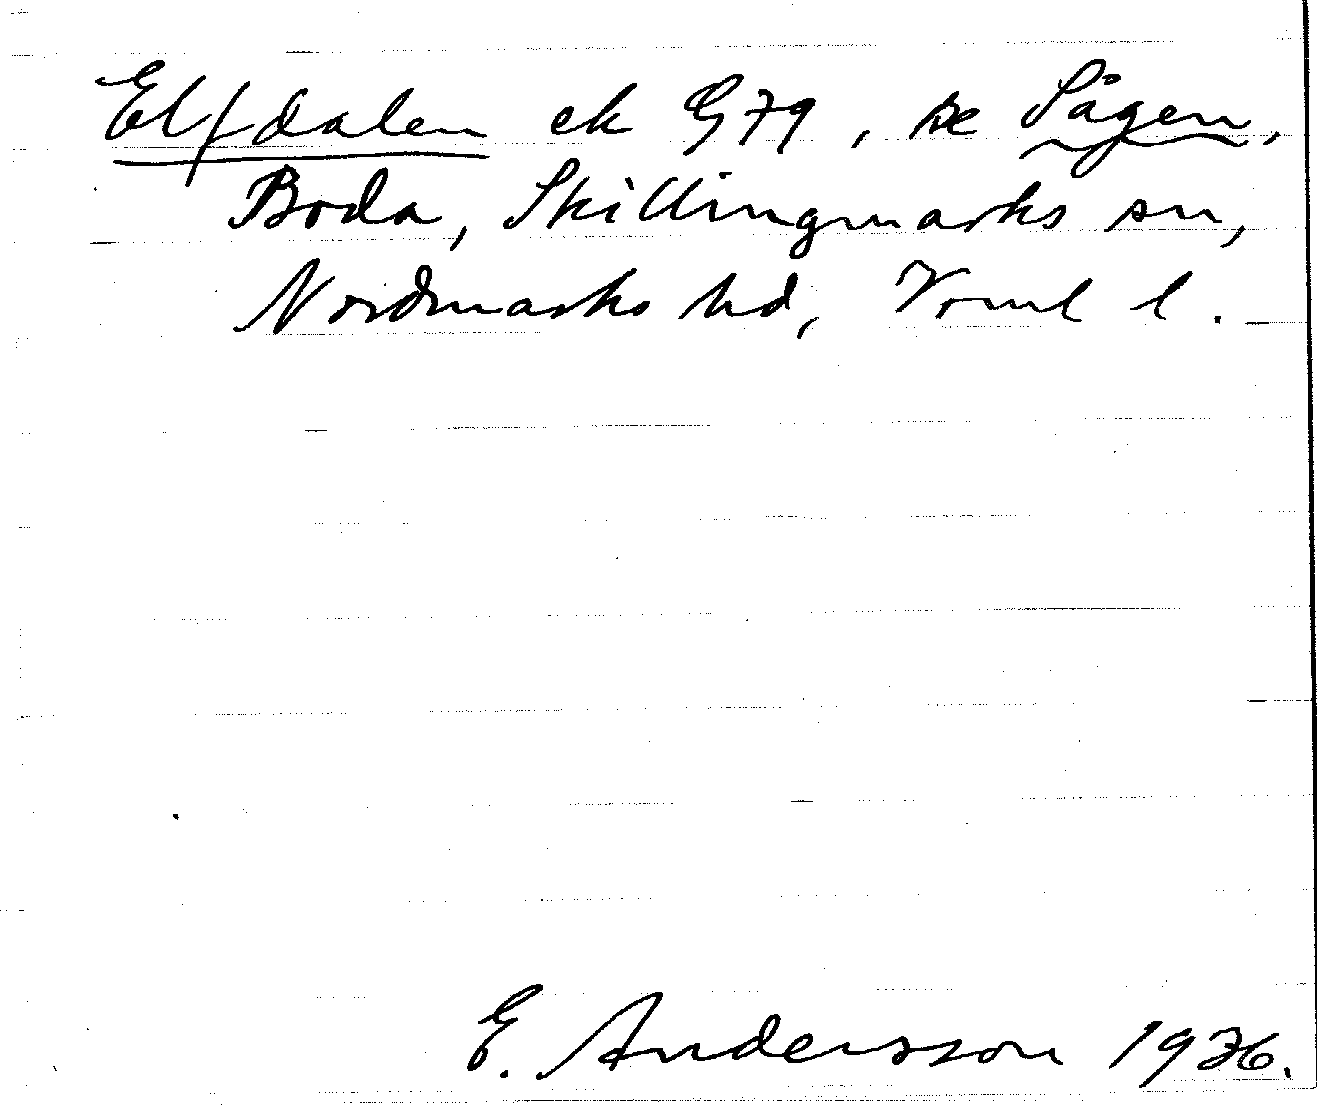 Elfdalen ek G79, se Sågen,
Boda, Skillingmarks sn,
Nordmarks hd, Vrml l.
E. Andersson 1936.